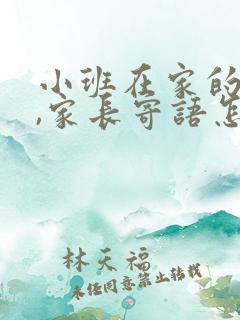 小班在家的
,家長寄語怎
林天福
未经同意禁止转载